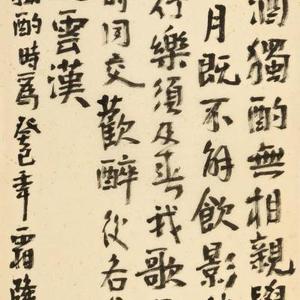 酒獨酌無相親舉
月既不解飲影
行樂須及春我歌
時同交歡醉後各
雲漢
酌時為癸巳年霜降